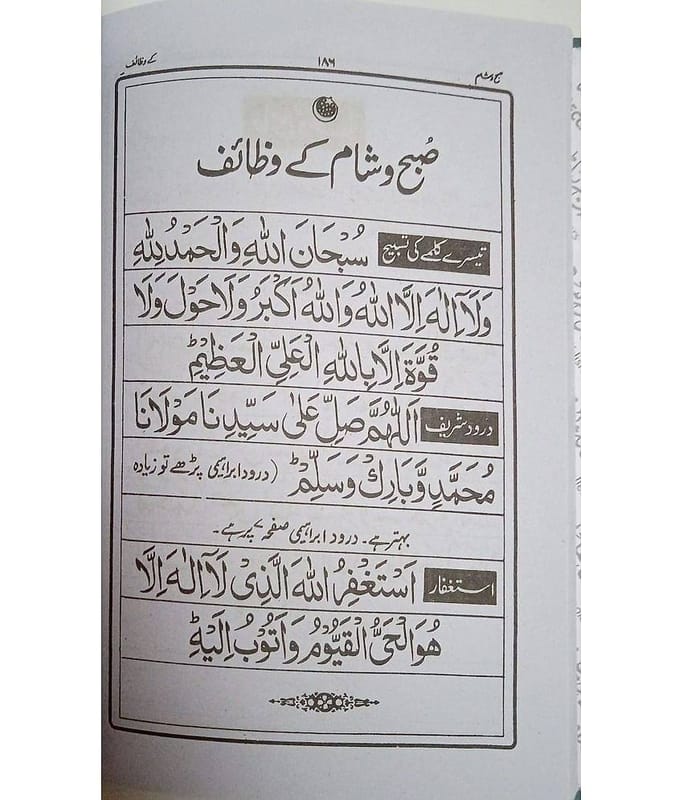 صبح و شام ۱۸۶ کے وظائف
صُبح و شام کے وظائف
تیسرے کلمے کی تسبیح سُبْحَانَ اللهِ وَالْحَمْدُ لِلّٰهِ
وَلَآ اِلٰهَ اِلَّا اللهُ وَاللهُ اَكْبَرُ وَلَا حَوْلَ وَلَا
قُوَّةَ اِلَّا بِاللهِ الْعَلِیِّ الْعَظِیْمِؕ
درود شریف اَللّٰهُمَّ صَلِّ عَلٰی سَیِّدِنَا مَوْلَانَا
مُحَمَّدٍ وَّبَارِكْ وَسَلِّمْؕ (درود ابراہیمی پڑھے تو زیادہ
بہتر ہے۔ درود ابراہیمی صفحہ ۷ پر ہے۔
استغفار اَسْتَغْفِرُ اللهَ الَّذِیْ لَآ اِلٰهَ اِلَّا
هُوَ الْحَیُّ الْقَیُّوْمُ وَاَتُوْبُ اِلَیْهِؕ